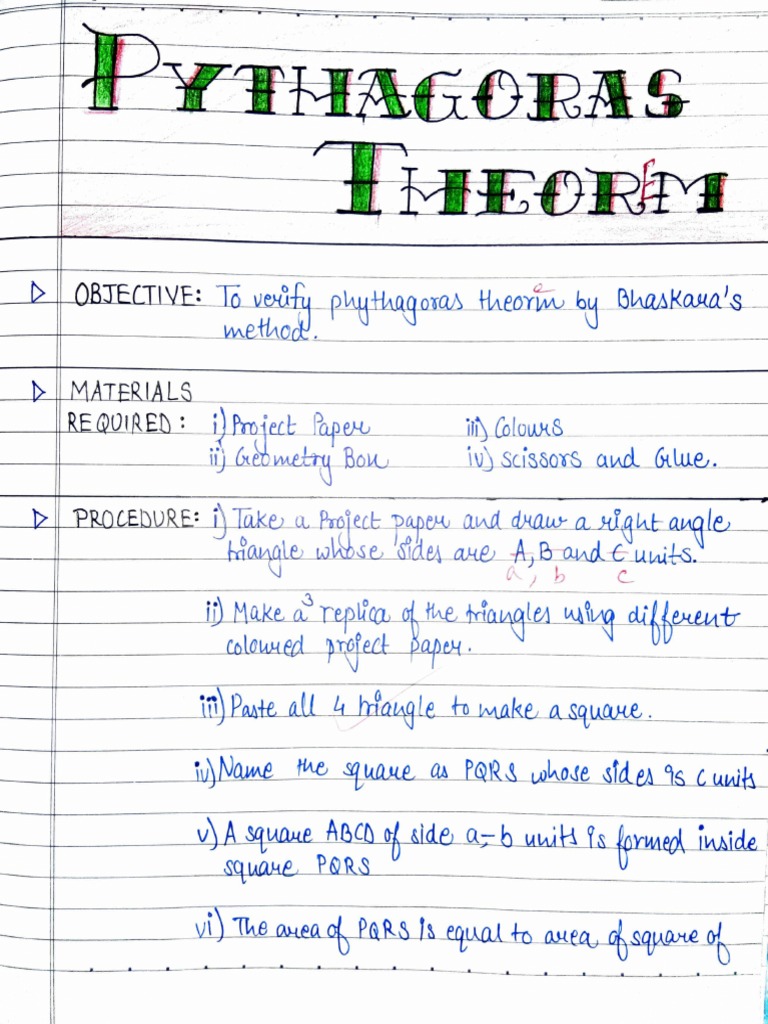 PYTHAGORAS
THEOREM
▷ OBJECTIVE: To verify phythagoras theorem by Bhaskara's
method.
▷ MATERIALS
REQUIRED: i) Project Paper iii) Colours
ii) Geometry Box iv) Scissors and Glue.
▷ PROCEDURE: i) Take a Project paper and draw a right angle
triangle whose sides are A, B and C units.
a, b c
ii) Make a 3 replica of the triangles using different
coloured project paper.
iii) Paste all 4 triangle to make a square.
iv) Name the square as PQRS whose sides is c units
v) A square ABCD of side a-b units is formed inside
square PQRS
vi) The area of PQRS is equal to area of square of